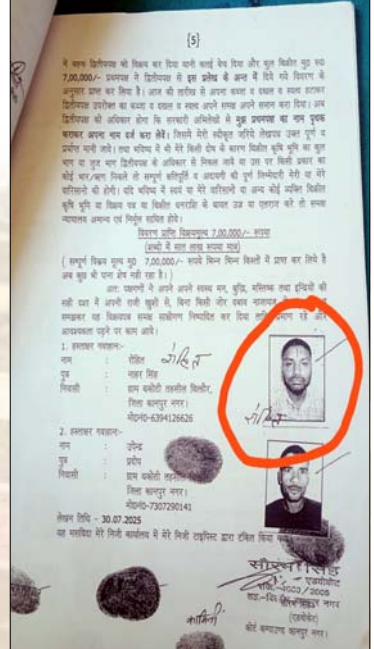 {5}
में बहक द्वितीयपक्ष को विक्रय कर दिया यानी कतई बेच दिया और कुल विक्रीत मु0 रू0
7,00,000/- प्रथमपक्ष ने द्वितीयपक्ष से इस प्रलेख के अन्त में दिये गये विवरण के
अनुसार प्राप्त कर लिया है। आज की तारीख से अपना कब्जा व दखल व स्वत्व हटाकर
द्वितीयपक्ष उपरोक्त का कब्जा व दखल व स्वत्व अपने समक्ष अपने समान करा दिया। अब
द्वितीयपक्ष को अधिकार होगा कि सरकारी अभिलेखों से मुझ प्रथमपक्ष का नाम पृथक
कराकर अपना नाम दर्ज करा लेवें। जिसमें मेरी स्वीकृत जरिये लेखपत्र उक्त पूर्ण व
पर्याप्त मानी जावे। तथा भविष्य में भी मेरे किसी दोष के कारण विक्रीत कृषि भूमि का कुल
भाग या जुज भाग द्वितीयपक्ष के अधिकार से निकल जावे या उस पर किसी प्रकार का
कोई भार/ऋण निकले तो सम्पूर्ण क्षतिपूर्ति व अदायगी की पूर्ण जिम्मेदारी मेरी या मेरे
वारिसानों की होगी। यदि भविष्य में स्वयं या मेरे वारिसानों या अन्य कोई व्यक्ति विक्रीत
कृषि भूमि या विक्रय पत्र या विक्रीत धनराशि के बावत उज्र या एतराज करे तो समक्ष
न्यायालय अमान्य एवं निर्मूल साबित होवे।
विवरण प्राप्ति विक्रयमूल्य 7,00,000/- रूपया
(शब्दों में सात लाख रूपया मात्र)
( सम्पूर्ण विक्रय मूल्य मु0 7,00,000/- रूपये भिन्न भिन्न किस्तों में प्राप्त कर लिये है
अब कुछ भी पाना शेष नही रहा है। )
अतः पक्षगणों ने अपने अपने स्वस्थ मन, बुद्धि, मस्तिष्क तथा इन्द्रियों की
सही दशा में अपनी राजी खुशी से, बिना किसी जोर दबाव नाजायज
समझकर यह विक्रयपत्र समक्ष साक्षीगण निष्पादित कर दिया ताकि प्रमाण रहे और
आवश्यकता पड़ने पर काम आवे।
1. हस्ताक्षर गवाहान:-
नाम : रोहित रोहित
पुत्र : नाहर सिंह
निवासी : ग्राम बकोठी तहसील बिल्हौर,
जिला कानपुर नगर।
मो0नं0-6394126626
रोहित
2. हस्ताक्षर गवाहान:-
नाम : उपेन्द्र
पुत्र : प्रदीप
निवासी : ग्राम बकोठी तहसील
जिला कानपुर नगर।
मो0नं0-7307290141
लेखन तिथि - 30.07.2025
यह मसविदा मेरे निजी कार्यालय में मेरे निजी टाइपिस्ट द्वारा टंकित किया गया
सौरभ सिंह
एडवोकेट
(एडवोकेट)
कोर्ट कम्पाउण्ड कानपुर नगर।